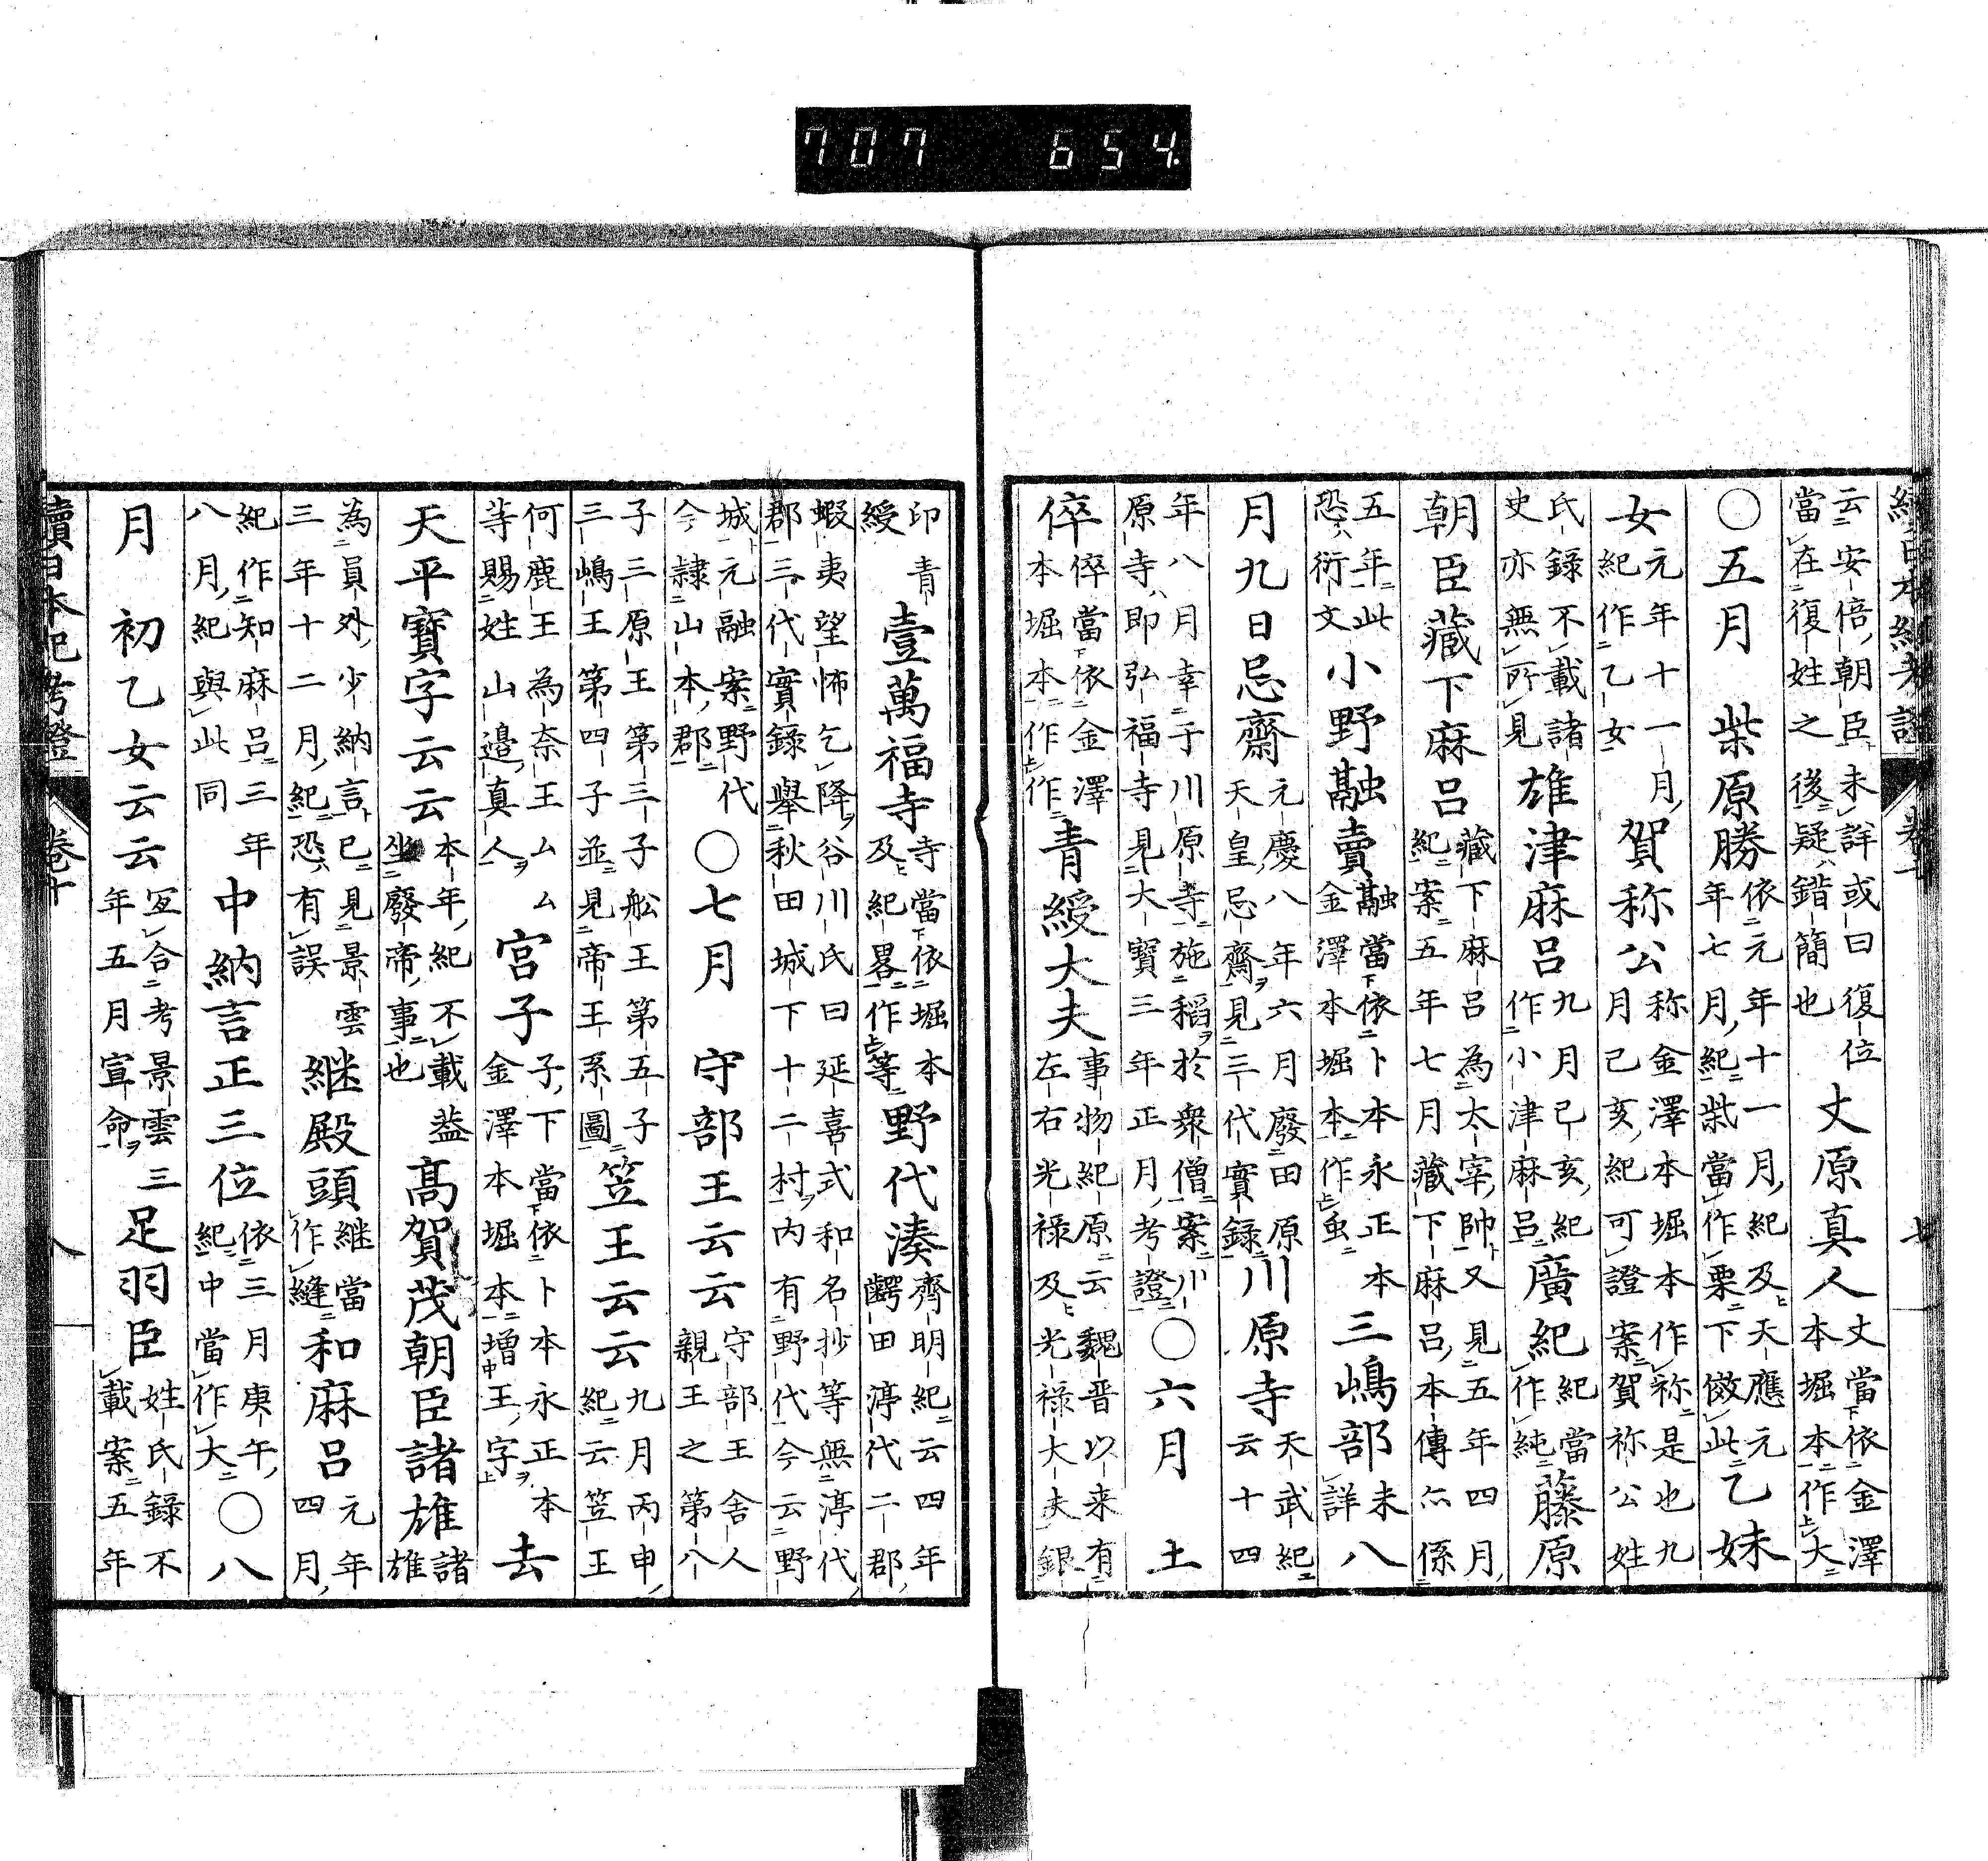 續日本紀考證 卷十 七
云安倍朝臣未詳或曰復位當在復姓之後疑錯簡也丈原真人丈當依金澤本堀本作大
○五月 柴原勝依元年十一月紀及天應元年七月紀柴當作栗下倣此乙妹
女元年十一月紀作乙女賀称公称金澤本堀本作祢是也九月己亥紀可證案賀祢公姓
氏録不載諸史亦無所見雄津麻呂九月己亥紀作小津麻呂廣紀紀當作純藤原
朝臣藏下麻呂藏下麻呂為太宰帥又見五年四月紀案五年七月藏下麻呂本傳亦係
五年此恐衍文小野融賣融當依卜本永正本金澤本堀本作虫三嶋部未詳八
月九日忌齋元慶八年六月廢田原天皇忌齋見三代實録川原寺天武紀云十四
年八月幸于川原寺施稲於衆僧案川原寺即弘福寺見大寶三年正月考證○六月 土
倅倅當依金澤本堀本作作青綬大夫事物紀原云魏晋以来有左右光禄及光禄大夫銀
印青綬壹萬福寺寺當依堀本及紀畧作等野代湊齊明紀云四年齶田渟代二郡
蝦夷望怖乞降谷川氏曰延喜式和名抄等無渟代郡三代實録舉秋田城下十二村内有野代今云野
城元融案野代今隷山本郡○七月 守部王云云守部王舍人親王之第八
子三原王第三子舩王第五子三嶋王第四子並見帝王系圖笠王云云九月丙申紀云笠王
何鹿王為奈王ムム等賜姓山邉真人宮子子下當依卜本永正本金澤本堀本増王字去
天平寳字云云本年紀不載葢坐廢帝事也髙賀茂朝臣諸雄諸雄
為員外少納言已見景雲三年十二月紀恐有誤継殿頭継當作縫和麻呂元年四月
紀作知麻呂三年八月紀與此同中納言正三位依三月庚午紀中當作大○八
月 初乙女云云冝合考景雲三年五月宣命足羽臣姓氏録不載案五年
續日本紀考證 卷十 八
707 654